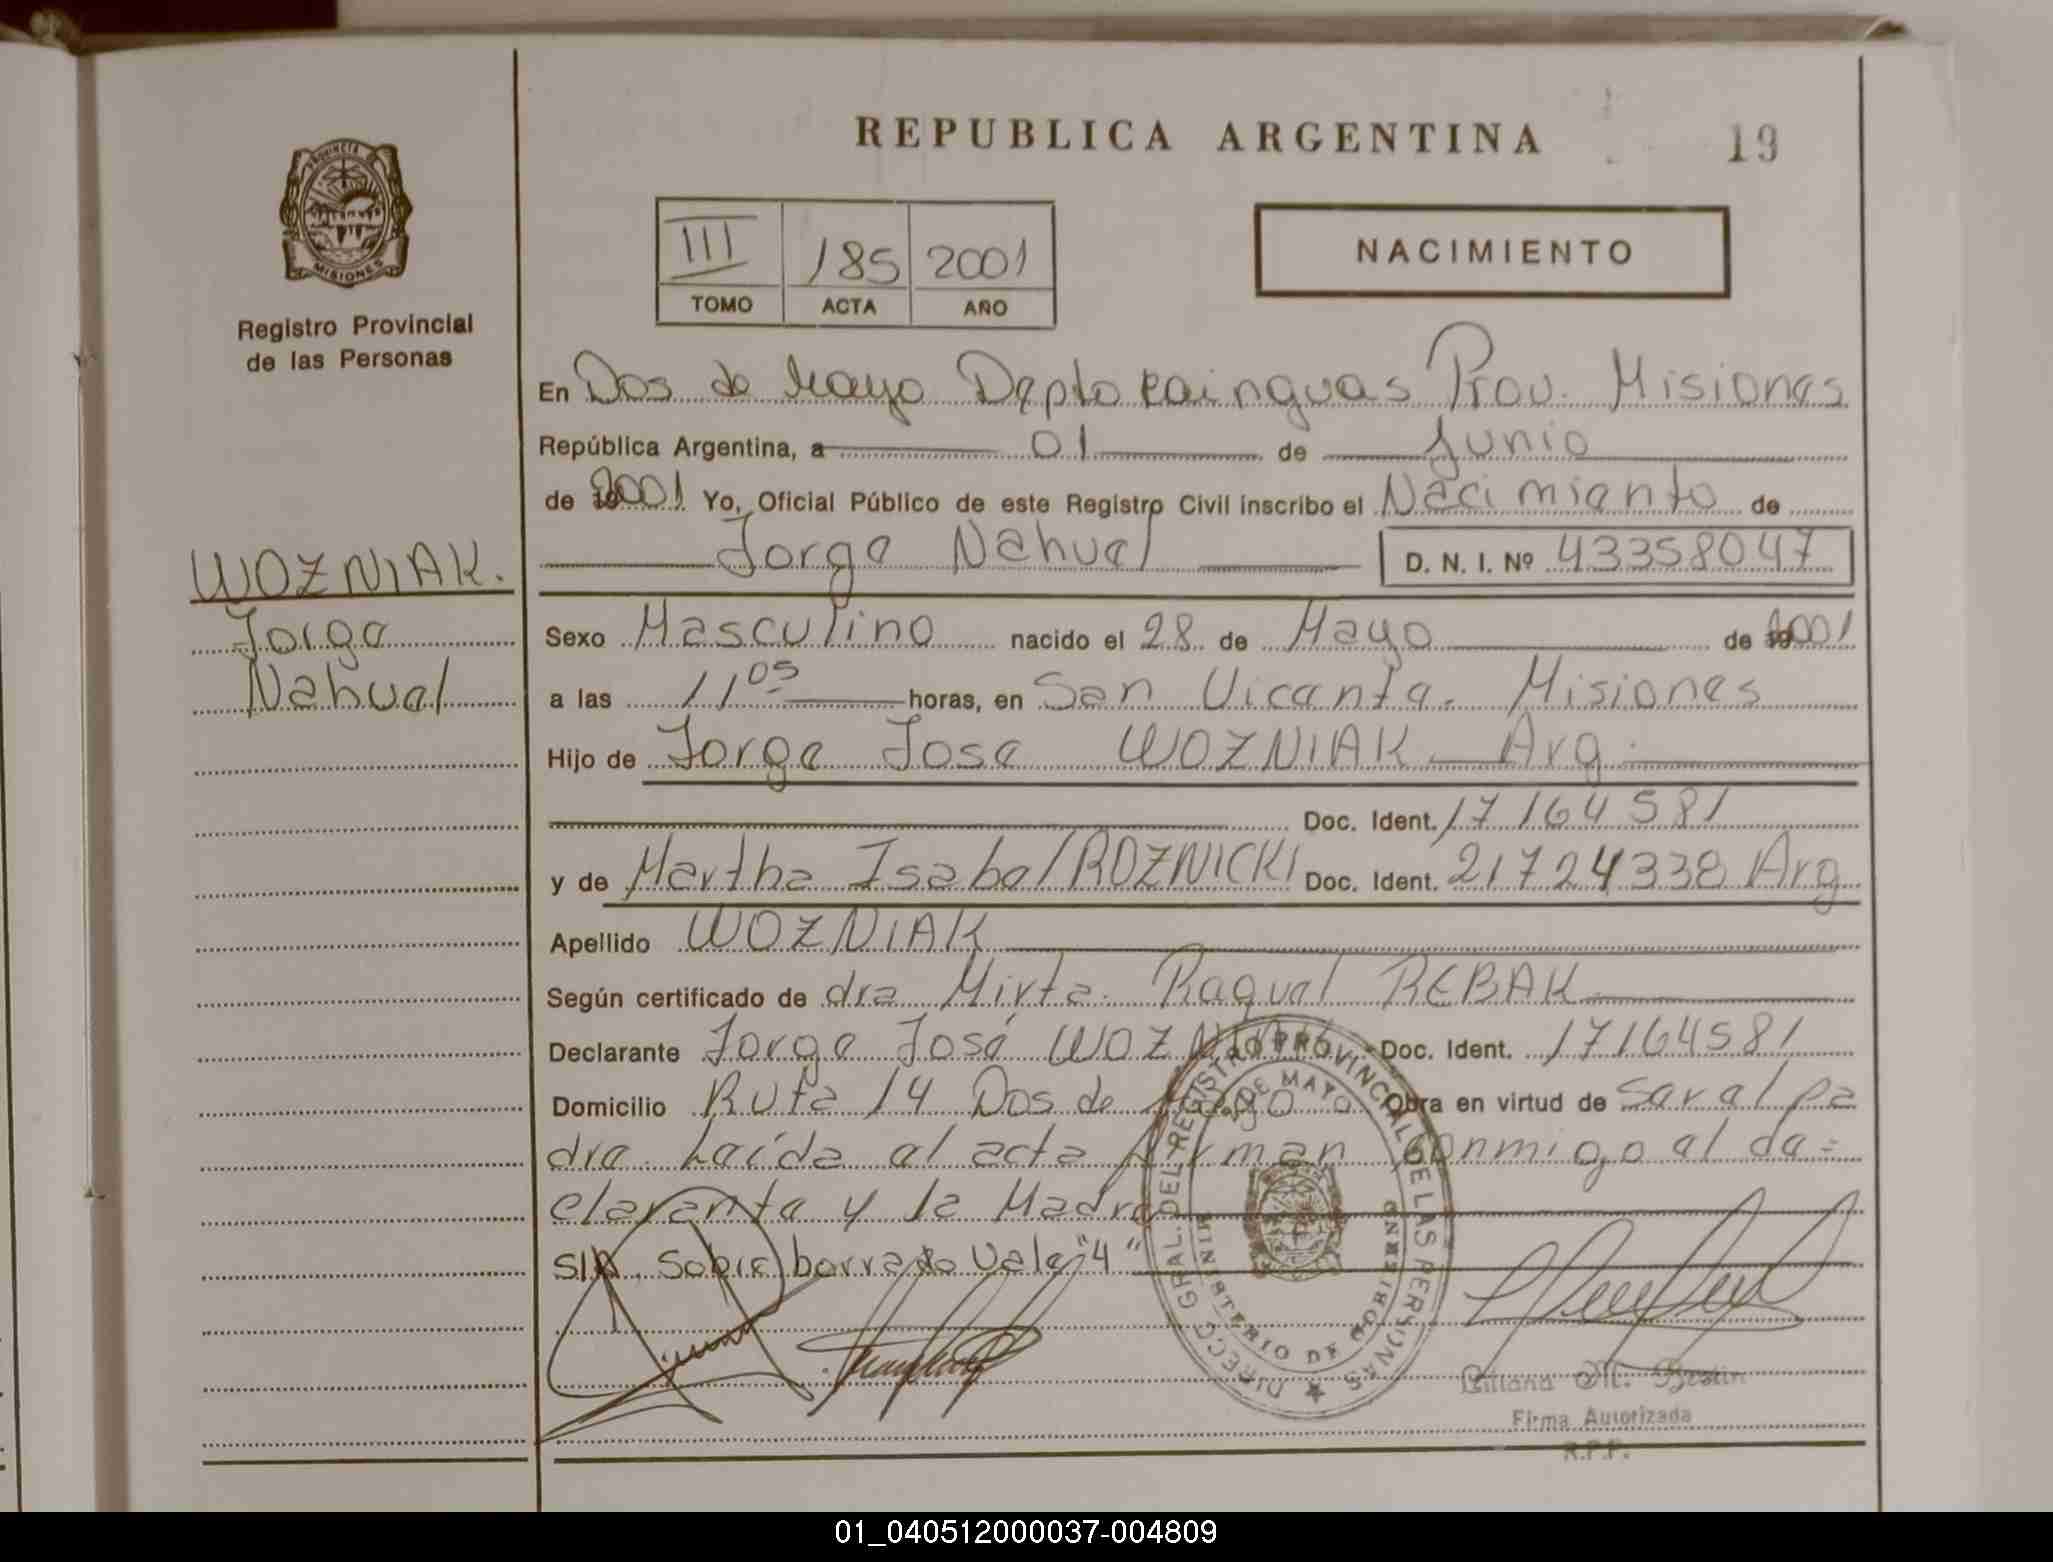 REPUBLICA ARGENTINA
19
PROVINCIA DE
MISIONES
Registro Provincial
de las Personas
III 185 2001
TOMO ACTA AÑO
NACIMIENTO
En Dos de Mayo Depto Cainguas Prov. Misiones
República Argentina, a 01 de Junio
de 2001 Yo, Oficial Público de este Registro Civil inscribo el Nacimiento de
Jorge Nahuel D. N. I. Nº 43358047
WOZNIAK.
Jorge
Nahuel
Sexo Masculino nacido el 28 de Mayo de 2001
a las 11 05 horas, en San Vicente. Misiones
Hijo de Jorge Jose WOZNIAK Arg.
Doc. Ident. 17164581
y de Martha Isabel ROZNICKI Doc. Ident. 21724338 Arg
Apellido WOZNIAK
Según certificado de dra Mirta Raquel REBAK
Declarante Jorge José WOZNIAK Doc. Ident. 17164581
Domicilio Ruta 14 Dos de Mayo Obra en virtud de ser el pa
dre. Leída el acta firman conmigo el de=
clarante y la Madre
S/R, sobre borrado Vale "4"
DIRECC. GRAL. DEL REGISTRO PROVINCIAL DE LAS PERSONAS
2 DE MAYO
MINISTERIO DE GOBIERNO
Liliana M.
Firma Autorizada
R.P.P.
01_040512000037-004809